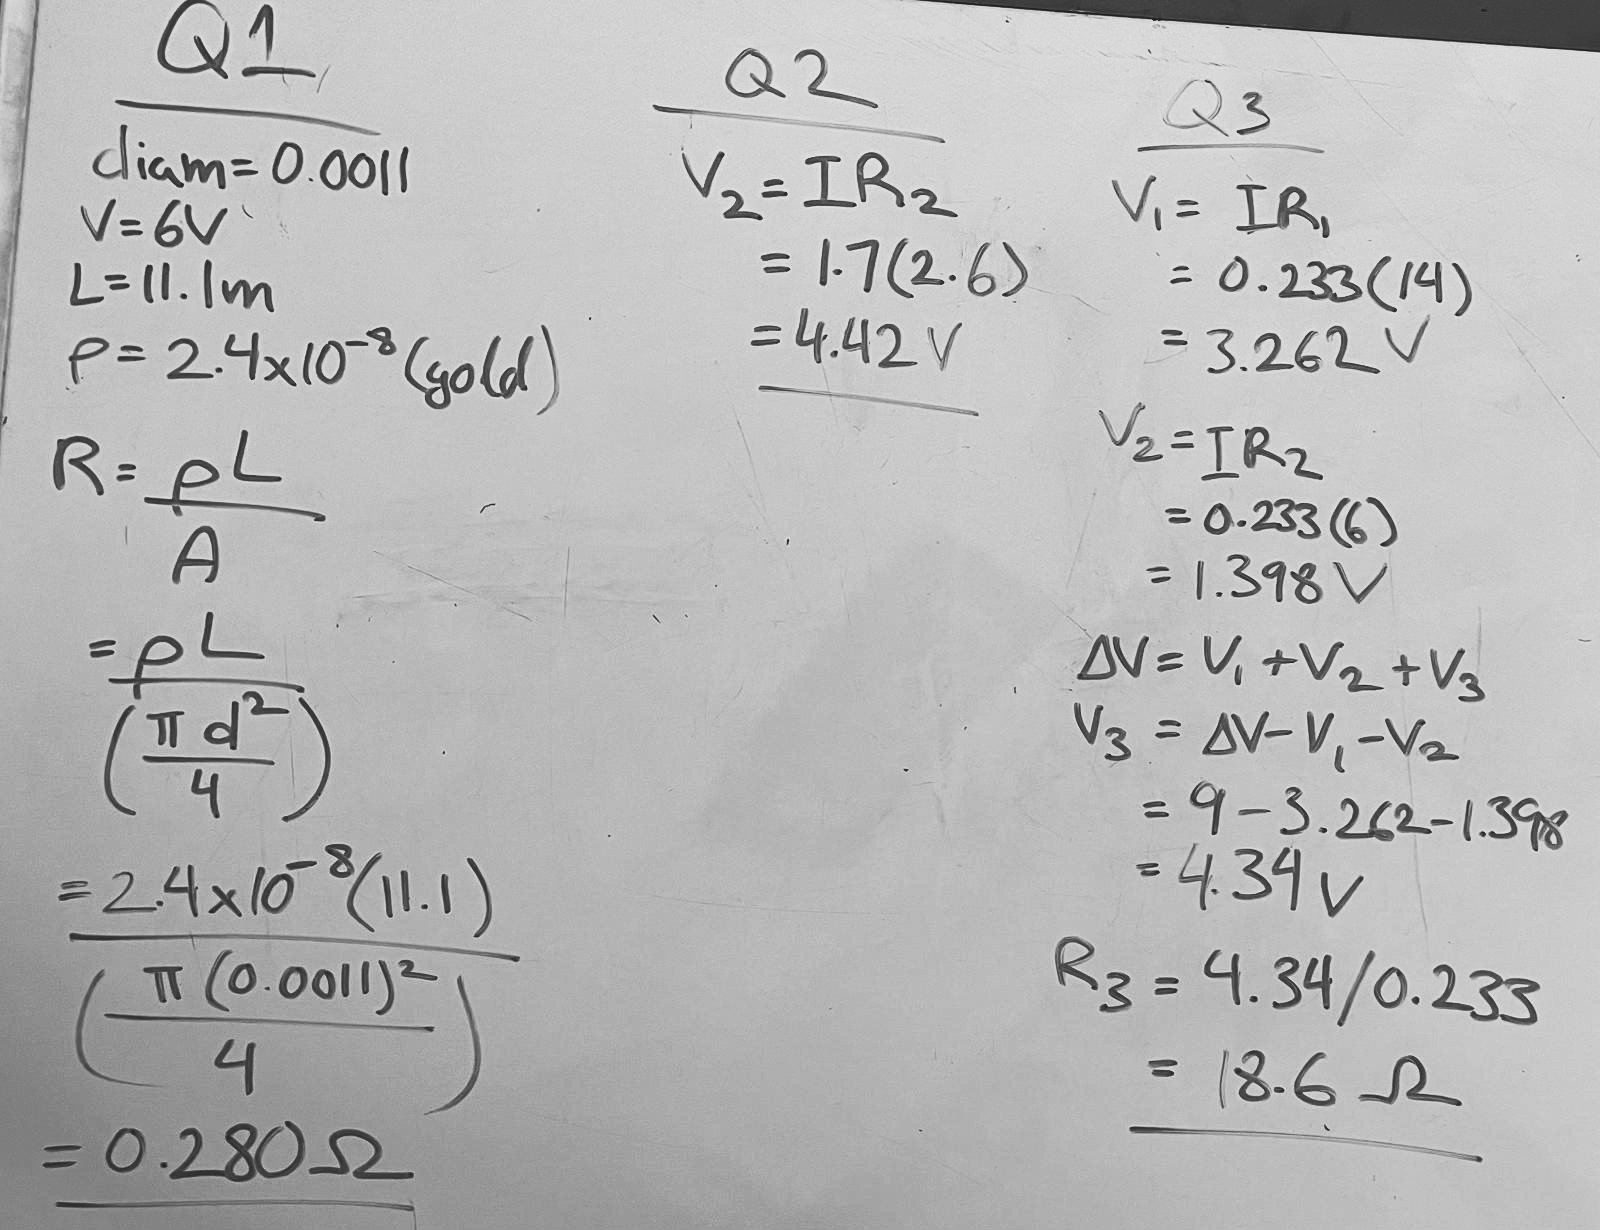 Q1
diam=0.0011
V=6V
L=11.1m
ρ=2.4x10⁻⁸(gold)
R=ρL
A
=ρL
(πd²
4)
=2.4x10⁻⁸(11.1)
(π(0.0011)²
4)
=0.280Ω
Q2
V₂=IR₂
=1.7(2.6)
=4.42V
Q3
V₁=IR₁
=0.233(14)
=3.262V
V₂=IR₂
=0.233(6)
=1.398V
ΔV=V₁+V₂+V₃
V₃=ΔV-V₁-V₂
=9-3.262-1.398
=4.34V
R₃=4.34/0.233
=18.6Ω